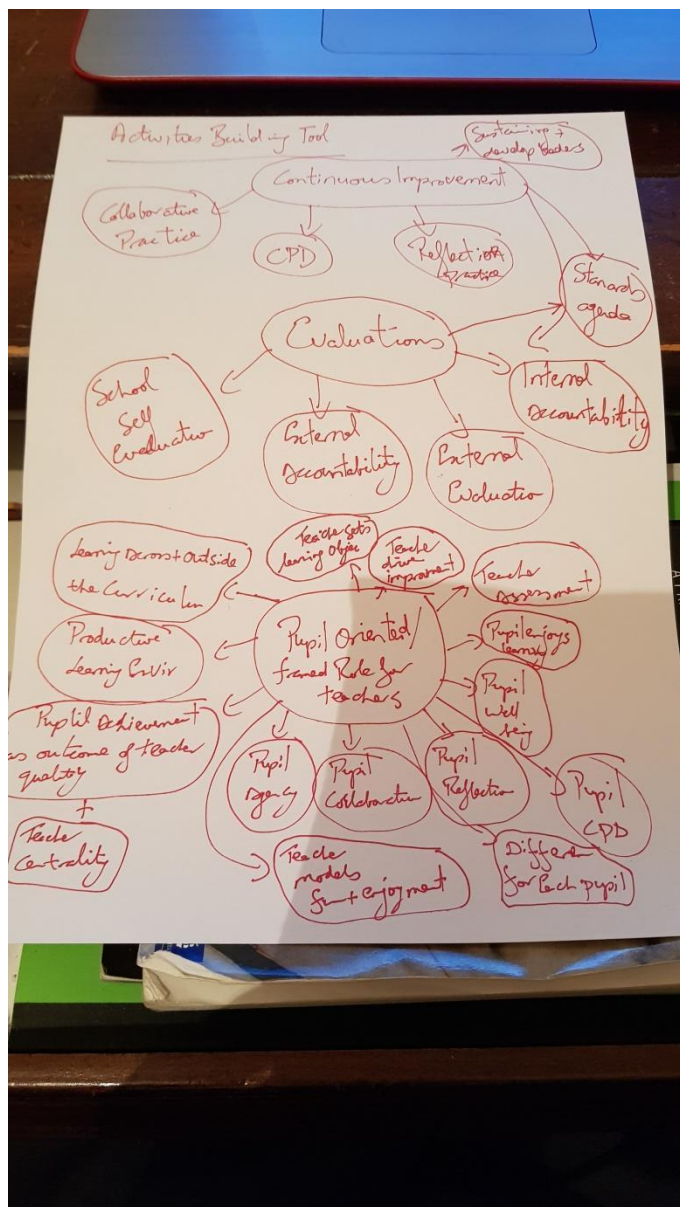 Activities Building Tool
Sustaining +
develop leaders
Continuous Improvement
Collaborative
Practice
CPD
Reflection
practice
Stanards
agenda
Evaluations
School
Self
Evaluation
External
Accountability
External
Evaluation
Internal
Accountability
Teacher sets
learning Objec
Teacher
drive
improvement
Teacher
Assessment
Learning Across + outside
the Curriculum
Productive
Learning Envir
Pupil Oriented/
framed Role for
teachers
Pupil enjoys
learning
Pupil
Well
being
Pupil Achievement
as outcome of teacher
quality
+
Teacher
Centrality
Pupil
Agency
Pupil
Collaboration
Pupil
Reflection
Pupil
CPD
Teacher
models
fun + enjoyment
Differen
for Each pupil